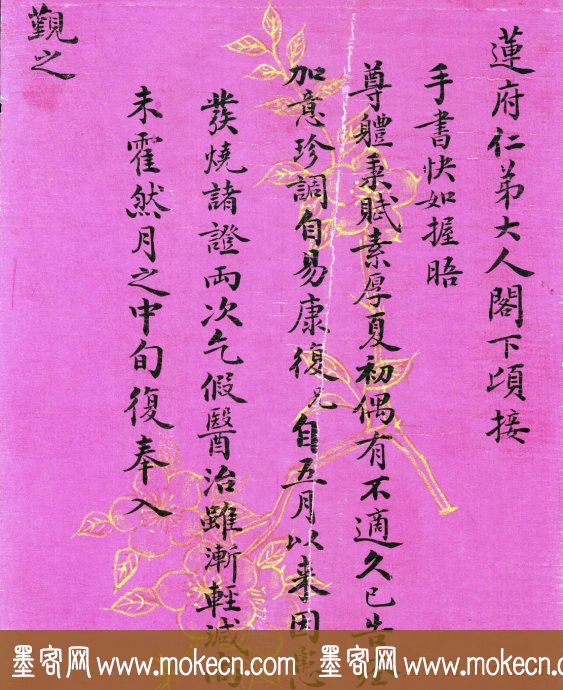 蓮府仁弟大人閣下頃接
手書快如握晤
尊體秉賦素厚夏初偶有不適久已告
加意珍調自易康復兄自五月以來因患
發燒諸證兩次乞假醫治雖漸輕減而
未霍然月之中旬復奉入
觀之
墨客网 www.mokecn.com 墨客网 www.mokecn.com